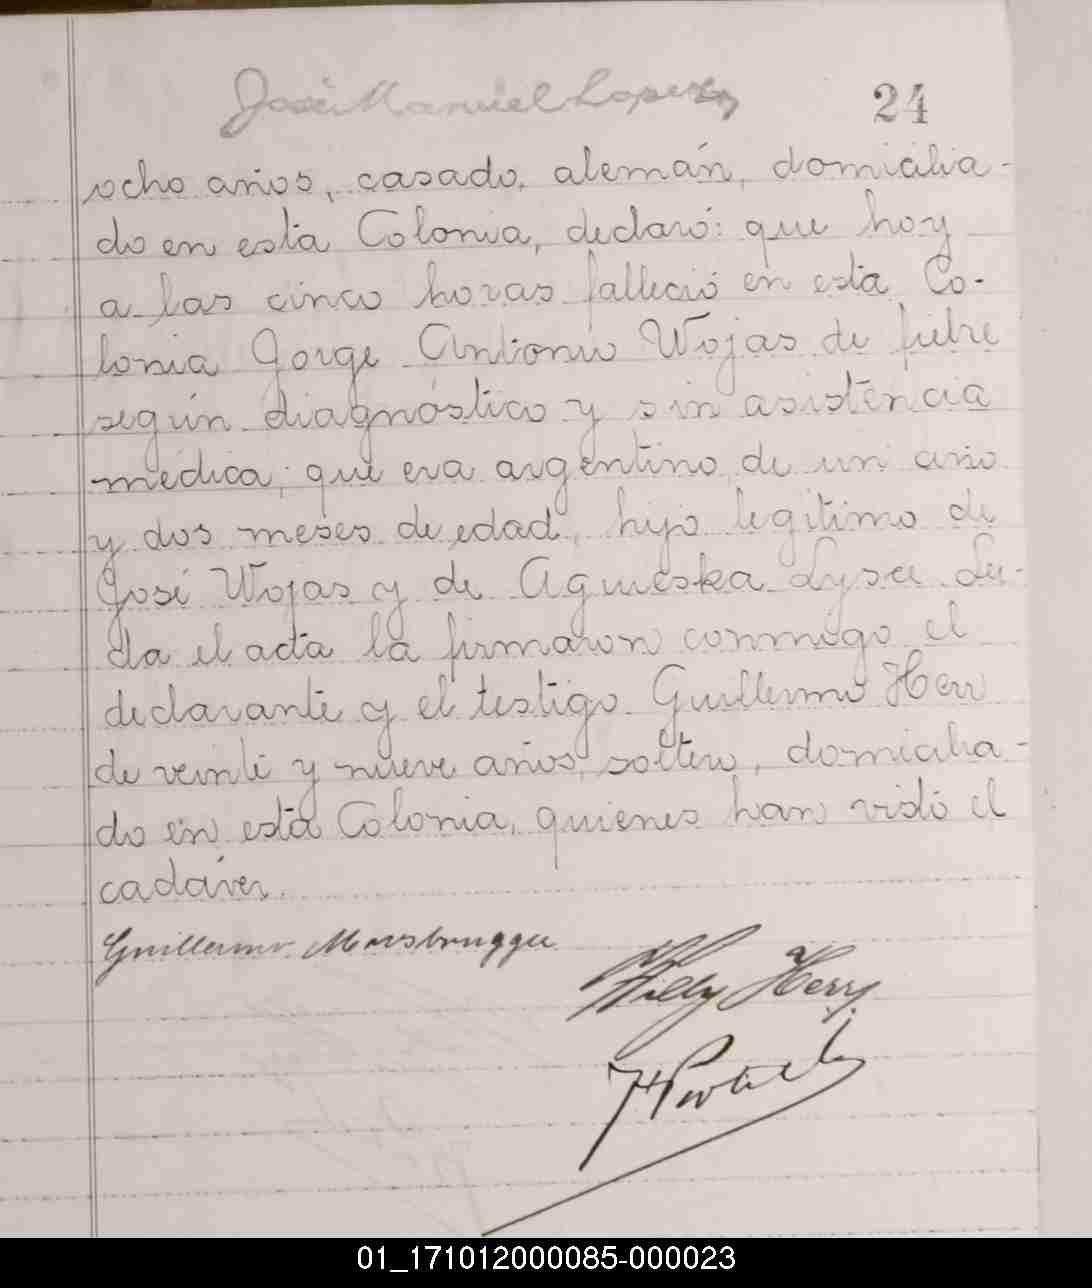 José Manuel Lopez
24
ocho años, casado, alemán, domicilia-
do en esta Colonia, declaró: que hoy
a las cinco horas falleció en esta Co-
lonia Jorge Antonio Wojas de fiebre
según diagnóstico y sin asistencia
médica; que era argentino de un año
y dos meses de edad, hijo legítimo de
José Wojas y de Agnieska Lysa. Leí-
da el acta la firmaron conmigo el
declarante y el testigo Guillermo Herr
de veinte y nueve años, soltero, domicilia-
do en esta Colonia, quienes han visto el
cadáver.
Guillermo Moosbrugger
Willy Herr
01_171012000085-000023